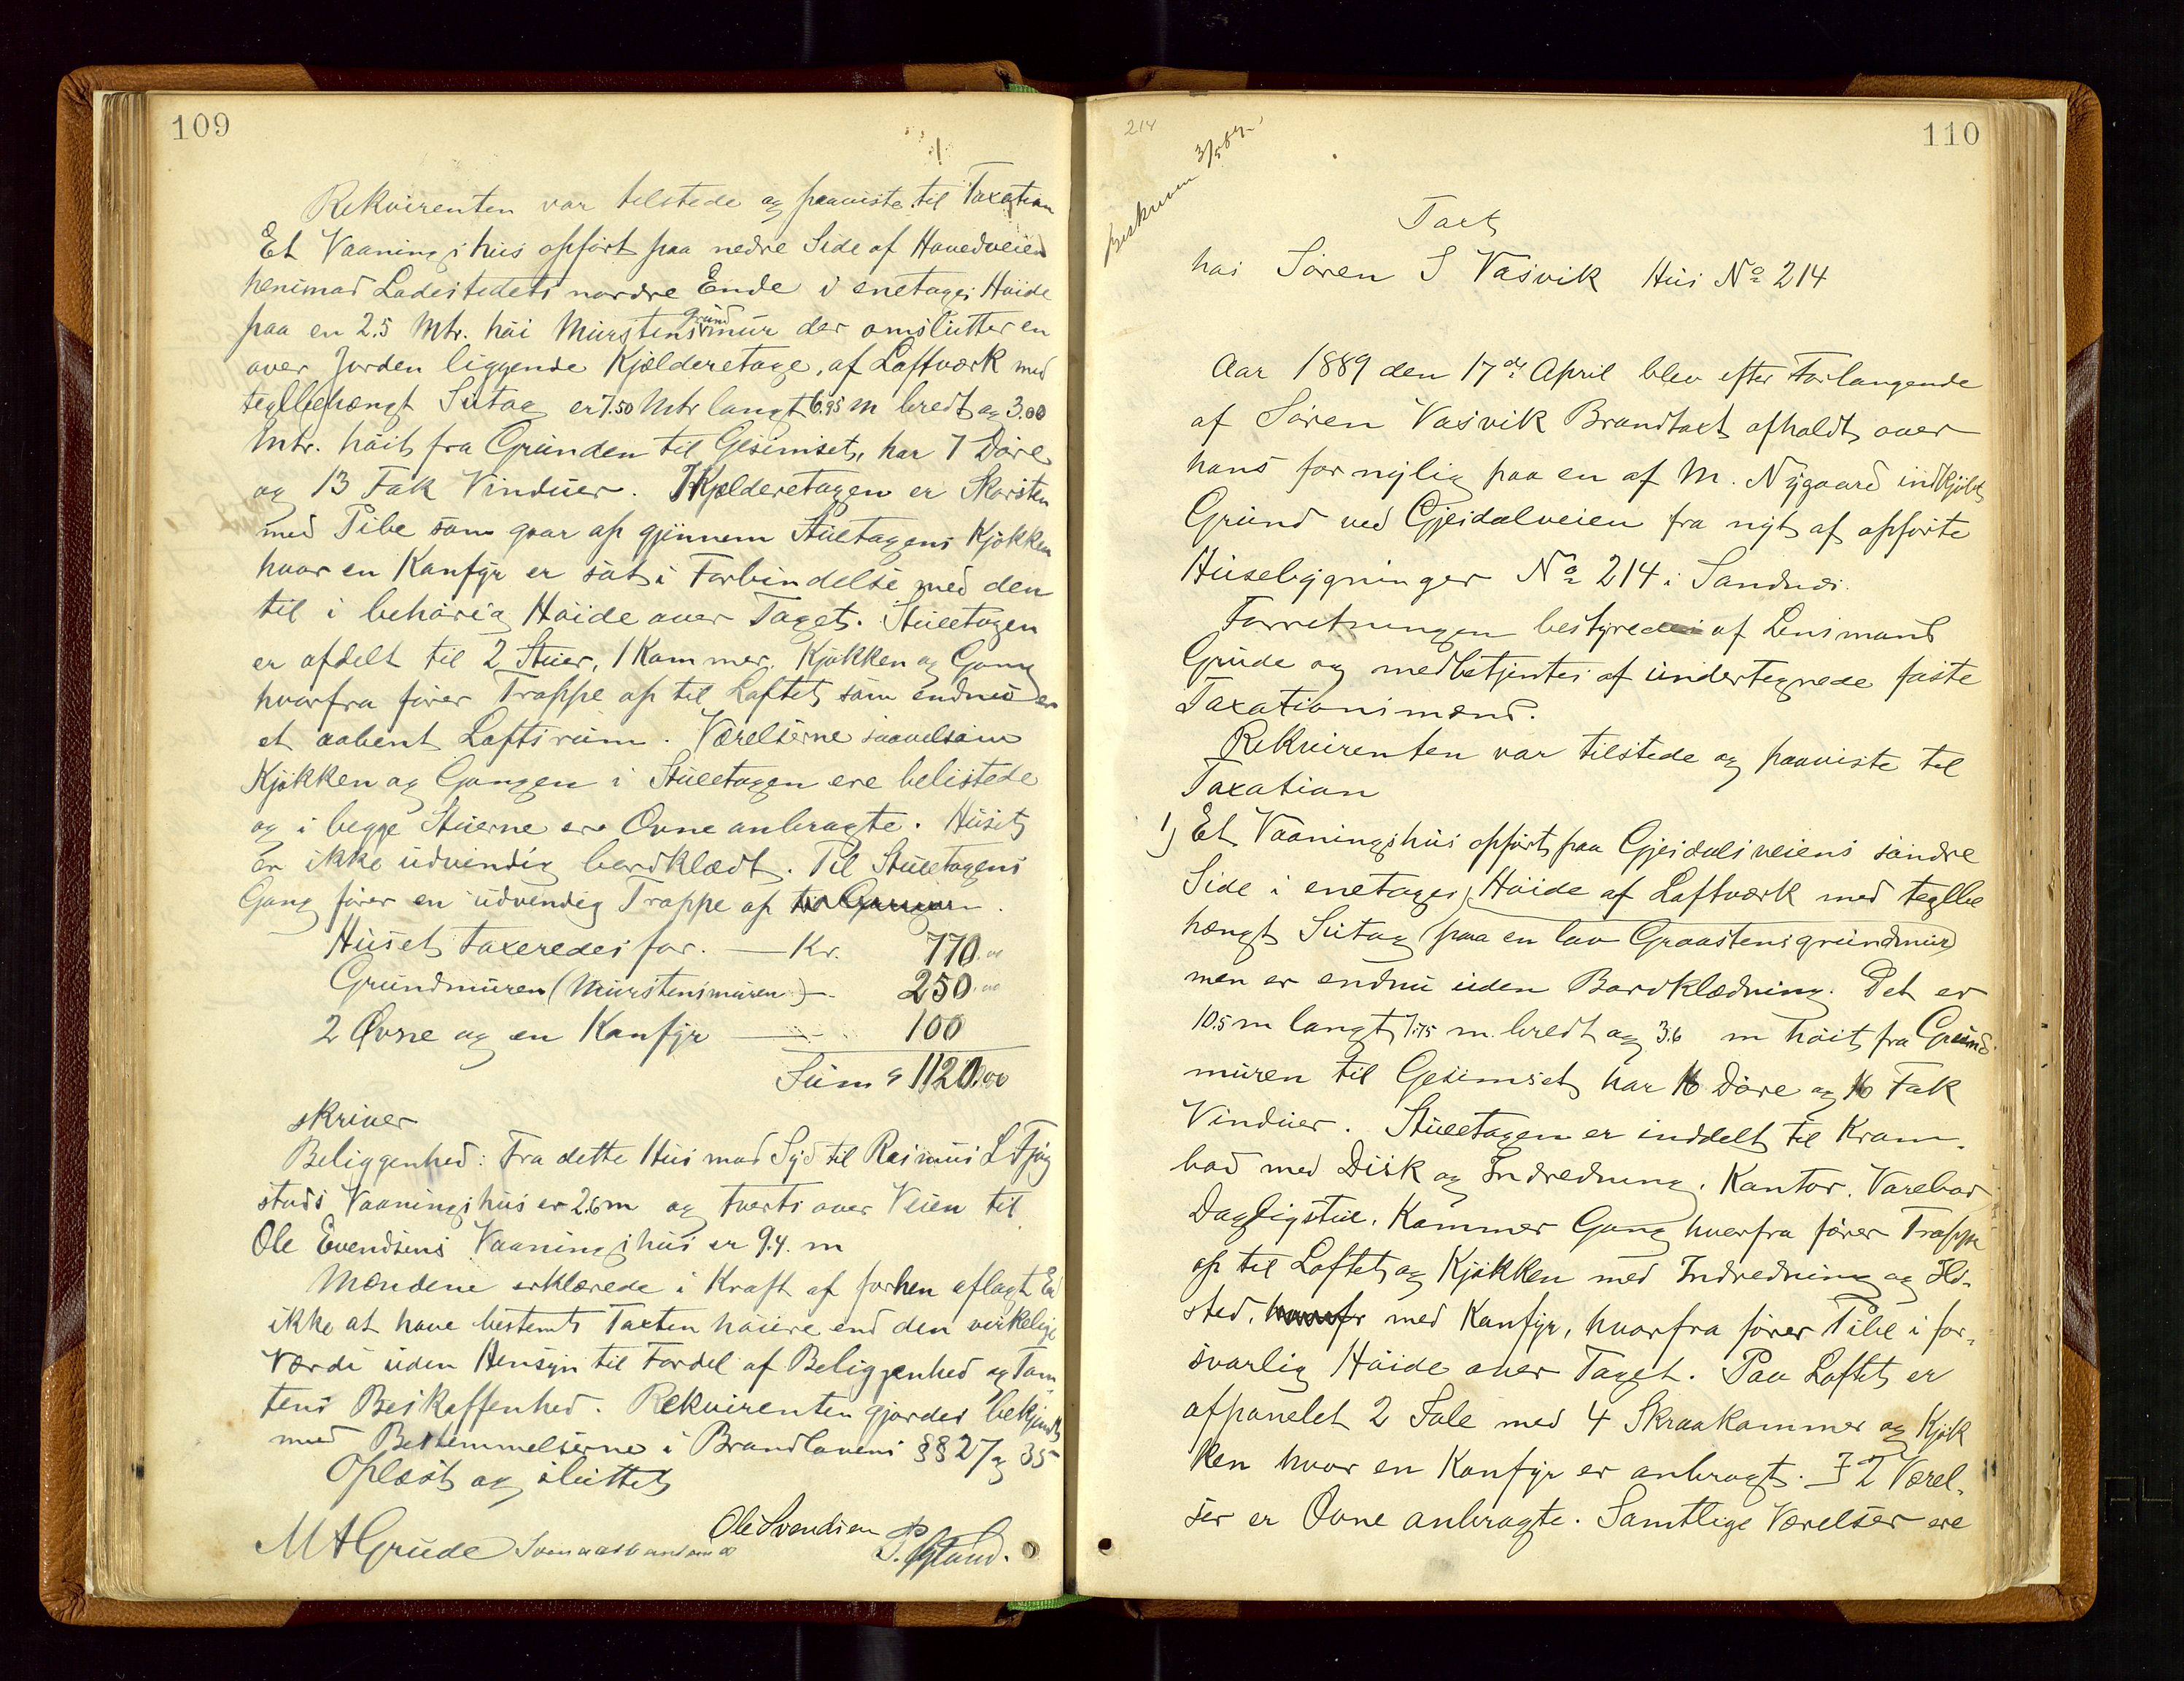 109
Rekvirenten var tilstede og paaviste til Taxation
Et Vaaningshus opført paa nedre Side af Hovedveien
henimod Ladestedets nordre Ende i enetages Høide
paa en 2.5 Mtr. høi Murstensgrundmur der omslutter en
over Jorden liggende Kjælderetage, af Laftværk med
teglbehængt Sutag er 7.50 Mtr langt 6.95 m bredt og 3.00
Mtr. høit fra Grunden til Gesimset, har 7 Døre
og 13 Fak Vinduer. I Kjelderetagen er Skorsten
med Pibe som gaar op gjennem Stuetagens Kjøkken
hvor en Komfyr er sat i Forbindelse med den
til i behørig Høide over Taget. Stueetagen
er afdelt til 2 Stuer, 1 Kammer, Kjøkken og Gang
hvorfra fører Trappe op til Loftet som endnu er
et aabent Loftsrum. Værelserne saavelsom
Kjøkken og Gangen i Stueetagen ere belistede
og i begge Stuerne er Ovne anbragte. Huset
er ikke udvendig bordklædt. Til Stueetagens
Gang fører en udvendig Trappe op
Huset taxeredes for. — Kr. 770.00
Grundmuren (Murstensmuren) — 250.00
2 Ovne og en Komfyr — 100
Sum " 1120.00
skriver
Beliggenhed: Fra dette Hus mod Syd til Rasmus L Fjog
stads Vaaningshus er 2.6 m og tverts over Veien til
Ole Evendsens Vaaningshus er 9.4. m
Mændene erklærede i Kraft af forhen aflagt Ed
ikke at have bestemt Taxten høiere end den virkelige
Værdi uden Hensyn til Fordel af Beliggenhed og Tom
tens Beskaffenhed. Rekvirenten gjordes bekjendt
med Bestemmelserne i Brandlovens §§ 27 og 35
Oplæst og sluttet
MAGrude Ole Svendsen
214
110
Beskreven 3/5 89.
Taxt
hos Søren S Vasvik Hus No 214
Aar 1889 den 17de April blev efter Forlangende
af Søren Vasvik Brandtaxt afholdt over
hans for nylig paa en af M. Nygaard indkjøbt
Grund ved Gjesdalveien fra nyt af opførte
Husebygninger No 214 i Sandnæs.
Forretningen bestyredes af Lensmand
Grude og medbetjentes af undertegnede faste
Taxationsmænd.
Rekvirenten var tilstede og paaviste til
Taxation
1) Et Vaaningshus opført paa Gjesdalsveiens søndre
Side i enetages Høide af Laftværk med teglbe
hængt Sutag (paa en lav Graastensgrundmur)
men er endnu uden Bordklædning. Det er
10.5 m langt 7.75 m. bredt og 3.6 m høit fra Grund
muren til Gesimset har 16 Døre og 16 Fak
Vinduer. Stueetagen er inddelt til Kram-
bod med Disk og Indredning, Kontor, Varebod
Dagligstue, Kammer Gang hvorfra fører Trappe
op til Loftet og Kjøkken med Indredning og Ild-
sted, med Komfyr, hvorfra fører Pibe i for-
svarlig Høide over Taget. Paa Loftet er
afpanelet 2 Sale med 4 Skraakammer og Kjøk
ken hvor en Komfyr er anbragt. I 2 Værel-
ser er Ovne anbragte. Samtlige Værelser ere